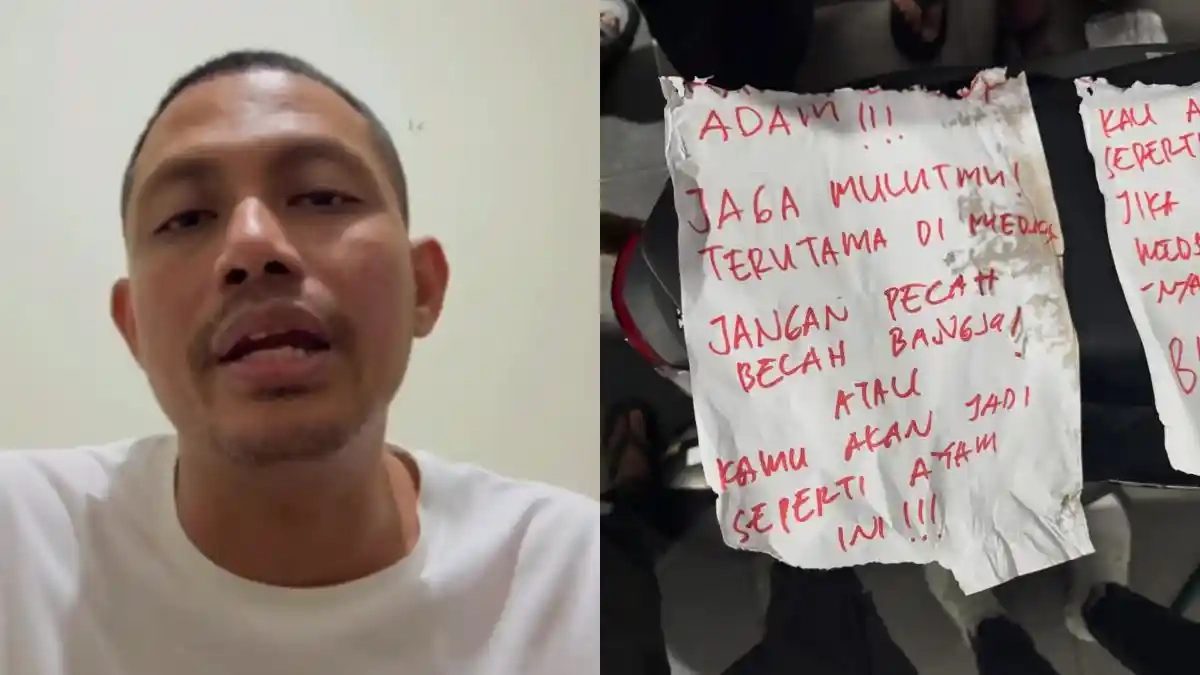 ADAM!!!
JAGA MULUTMU!
TERUTAMA DI MEDSOS
JANGAN PECAH
BECAH BANGSA!
ATAU
KAMU AKAN JADI
SEPERTI AYAM
INI!!!
KAU A
SEPERTI
JIKA
-NYA